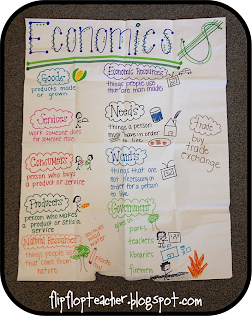 Economics $
Goods
products made
or grown
Services
work someone does
for someone else
Consumers
person who buys
a product or service
Producers
person who makes
a product or sells a
service
Natural Resources
things people use
that come from
nature
Economic Resources
things people use
that are man made
Needs
things a person
must have in order
to live
Wants
things that are
not necessary in
order for a person
to live
Government
parks
teachers
libraries
firemen
Trade
buy
trade
exchange
flipflopteacher.blogspot.com